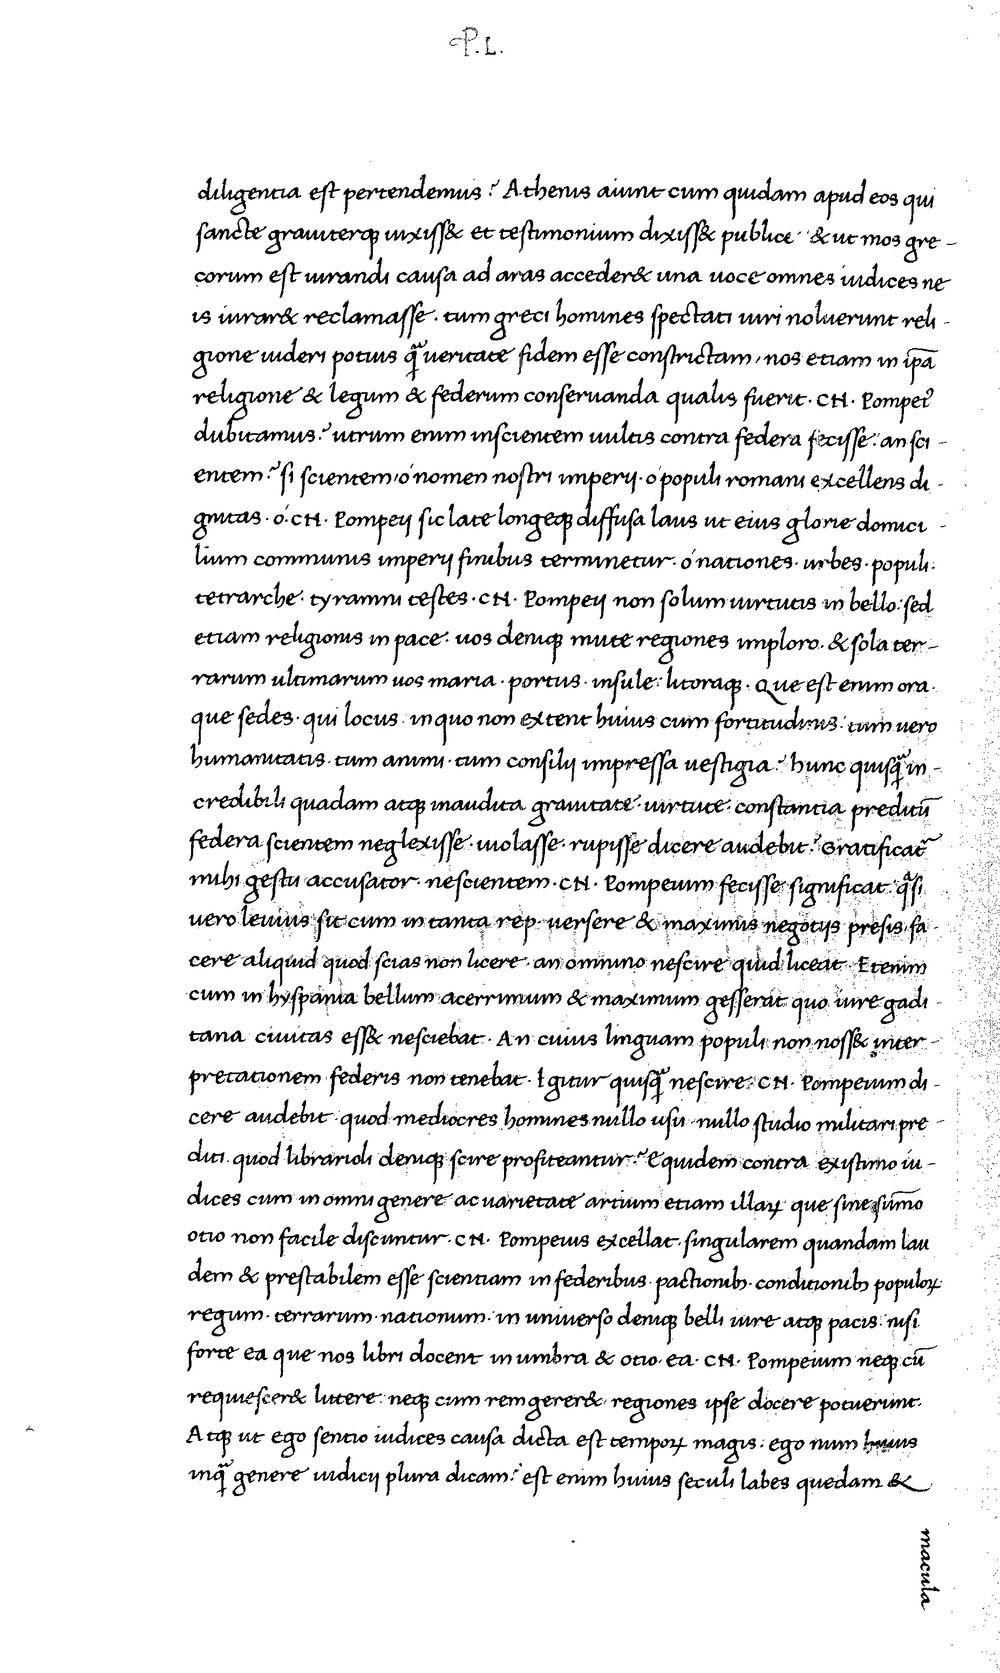 P. L.
diligentia est pertendemus? Athenis aiunt cum quidam apud eos qui
sancte grauiterq uixiss& et testimonium dixiss& publice & ut mos gre-
corum est iurandi causa ad aras acceder& una uoce omnes iudices ne
is iurar& reclamasse. tum greci homines spectati uiri noluerunt reli-
gione uideri potius q̃ ueritate fidem esse constrictam, nos etiam in ip̄a
religione & legum & federum conseruanda qualis fuerit. CN. Pompei᾽
dubitamus? utrum enim inscientem uultis contra federa fecisse: an sci-
entem? si scientem, ó nomen nostri imperij. o populi romani excellens di-
gnitas. ó. CN. Pompeij sic late longeq diffusa laus ut eius glorie domici-
lium communis imperij finibus terminetur. ó nationes. urbes. populi:
tetrarche. tyranni testes. CN. Pompeij non solum uirtutis in bello: sed
etiam religionis in pace. uos deniq mute regiones imploro. & sola ter-
rarum ultimarum uos maria. portus. insule: litoraq. Que est enim ora.
que sedes. qui locus. in quo non extent huius cum fortitudinis: tum uero
humanitatis. tum animi. tum consilij impressa uestigia? hunc quisq̃ in-
credibili quadam atq inaudita grauitate. uirtute. constantia preditū
federa scientem neglexisse. uiolasse. rupisse dicere audebit? Gratificat᾽
mihi gestu accusator. nescientem. CN. Pompeium fecisse significat. q̃si
uero leuius sit cum in tanta rep. uersere & maximis negotijs presis, fa-
cere aliquid quod scias non licere. an omnino nescire quid liceat. Etenim
cum in hyspania bellum acerrimum & maximum gesserat quo iure gadi-
tana ciuitas ess& nesciebat. An cuius linguam populi non noss& inter-
pretationem federis non tenebat. Igitur quisq̃ nescire. CN. Pompeium di-
cere audebit quod mediocres homines nullo usu. nullo studio militari pre-
diti. quod librarioli deniq scire profiteantur? Equidem contra existimo iu-
dices cum in omni genere ac uarietate artium etiam illaꝝ que sine sūmo
otio non facile discuntur. CN. Pompeius excellat. singularem quandam lau
dem & prestabilem esse scientiam in federibus. pactionibꝫ. conditionibꝫ populoꝝ
regum. terrarum. nationum. in uniuerso deniq belli iure atq pacis: nisi
forte ea que nos libri docent in umbra & otio. ea. CN. Pompeium neq cū
requiescer& litere. neq cum rem gerer& regiones ipse docere potuerunt.
Atq ut ego sentio iudices causa dicta est tempoꝝ magis. ego num huius
inq̃ genere iudicij plura dicam? est enim huius seculi labes quedam &
macula